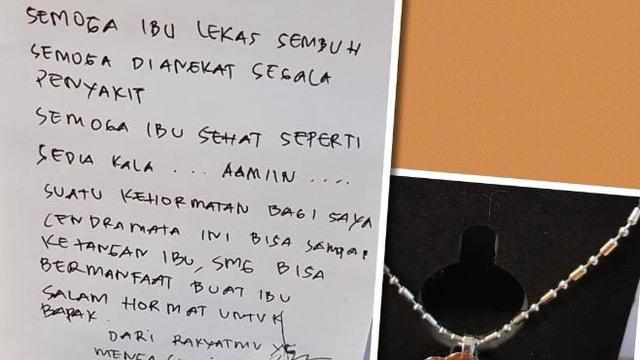 SEMOGA IBU LEKAS SEMBUH
SEMOGA DIANGKAT SEGALA
PENYAKIT
SEMOGA IBU SEHAT SEPERTI
SEDIA KALA ... AAMIIN ....
SUATU KEHORMATAN BAGI SAYA
CENDRAMATA INI BISA SAMPAI
KETANGAN IBU, SMG BISA
BERMANFAAT BUAT IBU
SALAM HORMAT UNTUK
BAPAK.
DARI RAKYATMU